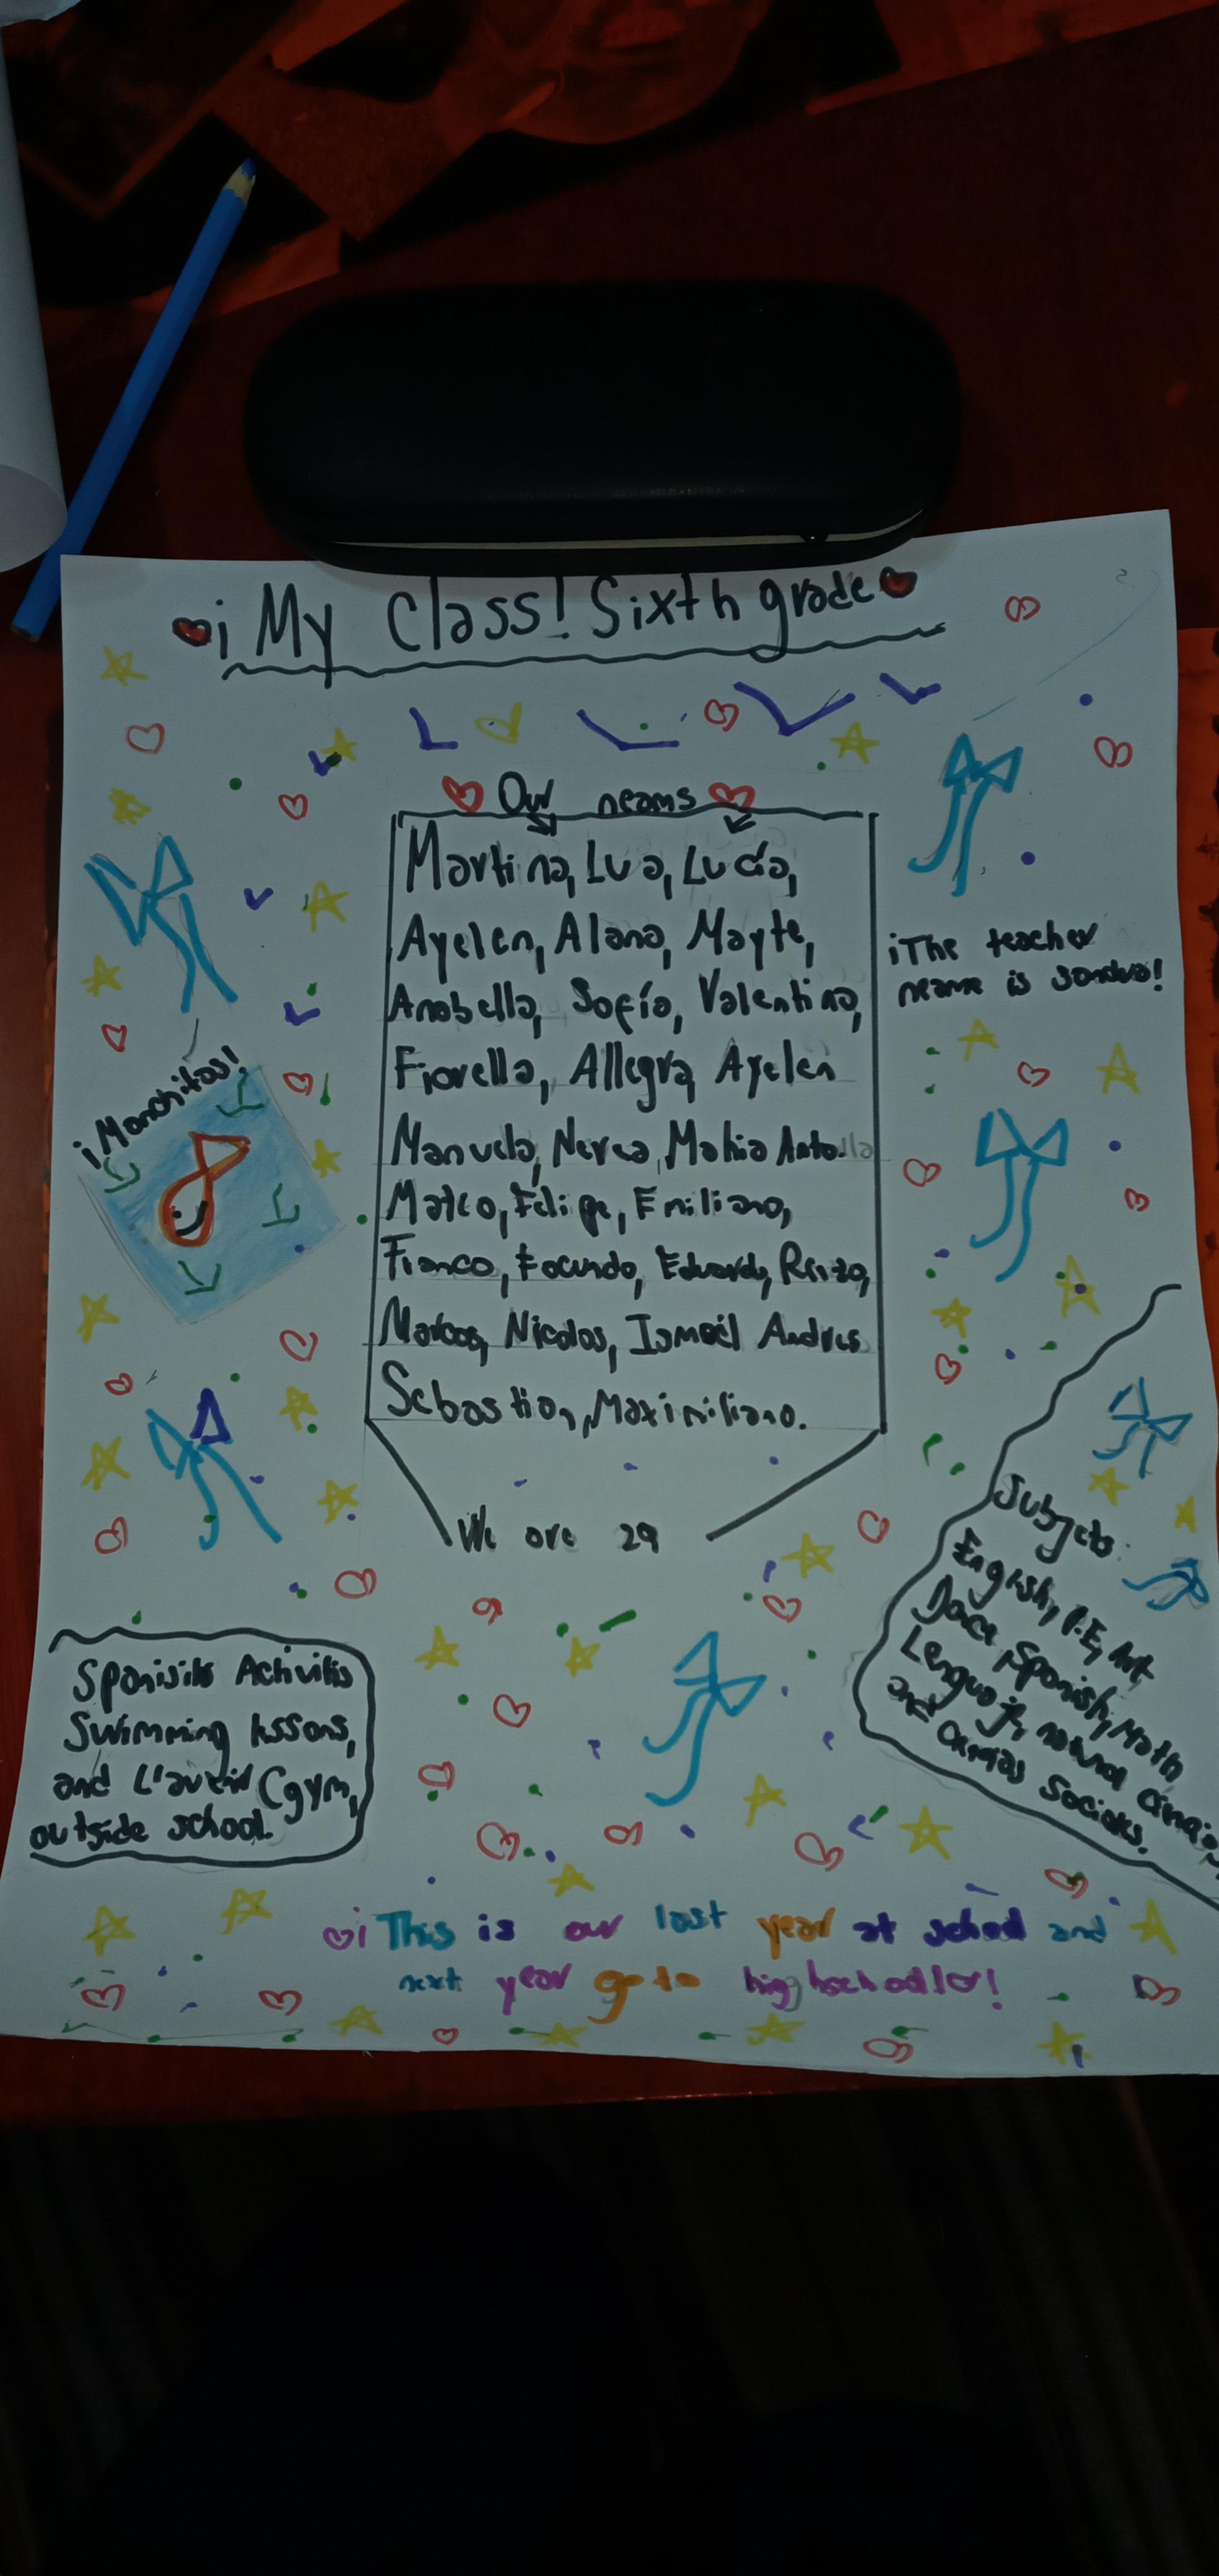 ¡My Class! Sixth grade
Our neams
Martina, Lua, Lucía,
Ayelen, Alana, Mayte,
Anabella, Sofía, Valentina,
Fiorella, Allegra, Ayelen
Manuela, Nerea, Mahia Anto
Mateo, Felipe, Emiliano,
Franco, Facundo, Eduardo,
Marcos, Nicolas, Ismael Andres
Sebastian, Maximiliano.
We are 29
¡The teacher
neame is sandra!
¡Manchitas!
Subjets:
English, P.E, Art
Dace, Spanish, Math
Lenguaje, natural
and Cienias Sociales.
Activitis
Swimming lssons,
and L'avenir (gym,
outside school
¡This is our last year at school and
next year go to